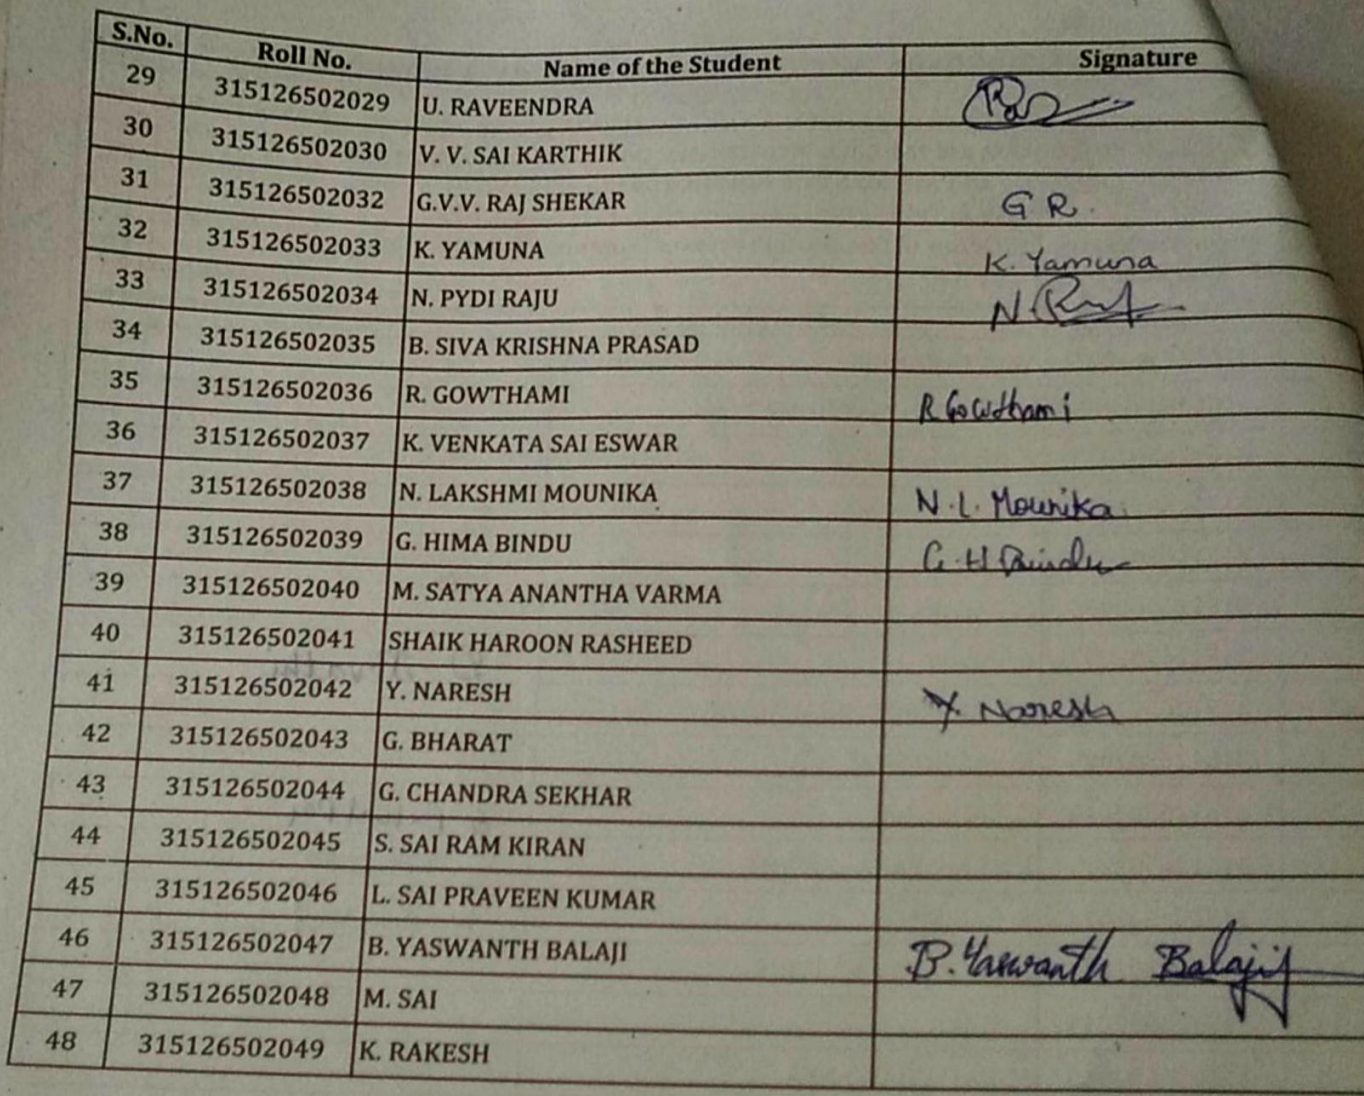 S.No. Roll No. Name of the Student Signature
29 315126502029 U. RAVEENDRA
30 315126502030 V. V. SAI KARTHIK
31 315126502032 G.V.V. RAJ SHEKAR G R.
32 315126502033 K. YAMUNA K. Yamuna
33 315126502034 N. PYDI RAJU N.
34 315126502035 B. SIVA KRISHNA PRASAD
35 315126502036 R. GOWTHAMI R Gowthami
36 315126502037 K. VENKATA SAI ESWAR
37 315126502038 N. LAKSHMI MOUNIKA N. L. Mounika
38 315126502039 G. HIMA BINDU G. H Bindu
39 315126502040 M. SATYA ANANTHA VARMA
40 315126502041 SHAIK HAROON RASHEED
41 315126502042 Y. NARESH Y. Naresh
42 315126502043 G. BHARAT
43 315126502044 G. CHANDRA SEKHAR
44 315126502045 S. SAI RAM KIRAN
45 315126502046 L. SAI PRAVEEN KUMAR
46 315126502047 B. YASWANTH BALAJI B. Yaswanth Balaji
47 315126502048 M. SAI
48 315126502049 K. RAKESH